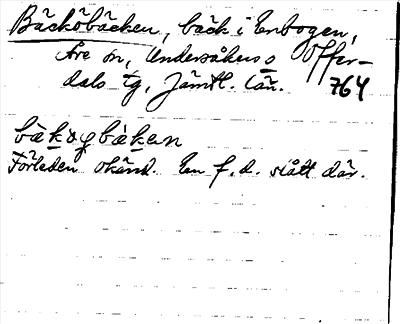 Bäcköbäcken, bäck i Enbogen,
Åre sn, Undersåkers o Offer-
dals tg, Jämtl. län. 764
bäkogbäken
Förleden okänd. En f.d. slått där.